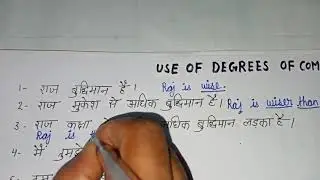 USE OF DEGREES OF COM
1- राज बुद्धिमान है। Raj is wise.
2- राज मुकेश से अधिक बुद्धिमान है। Raj is wiser than
3- राज कक्षा अधिक बुद्धिमान लड़का है।
Raj is
4- मैं तुमसे
5-